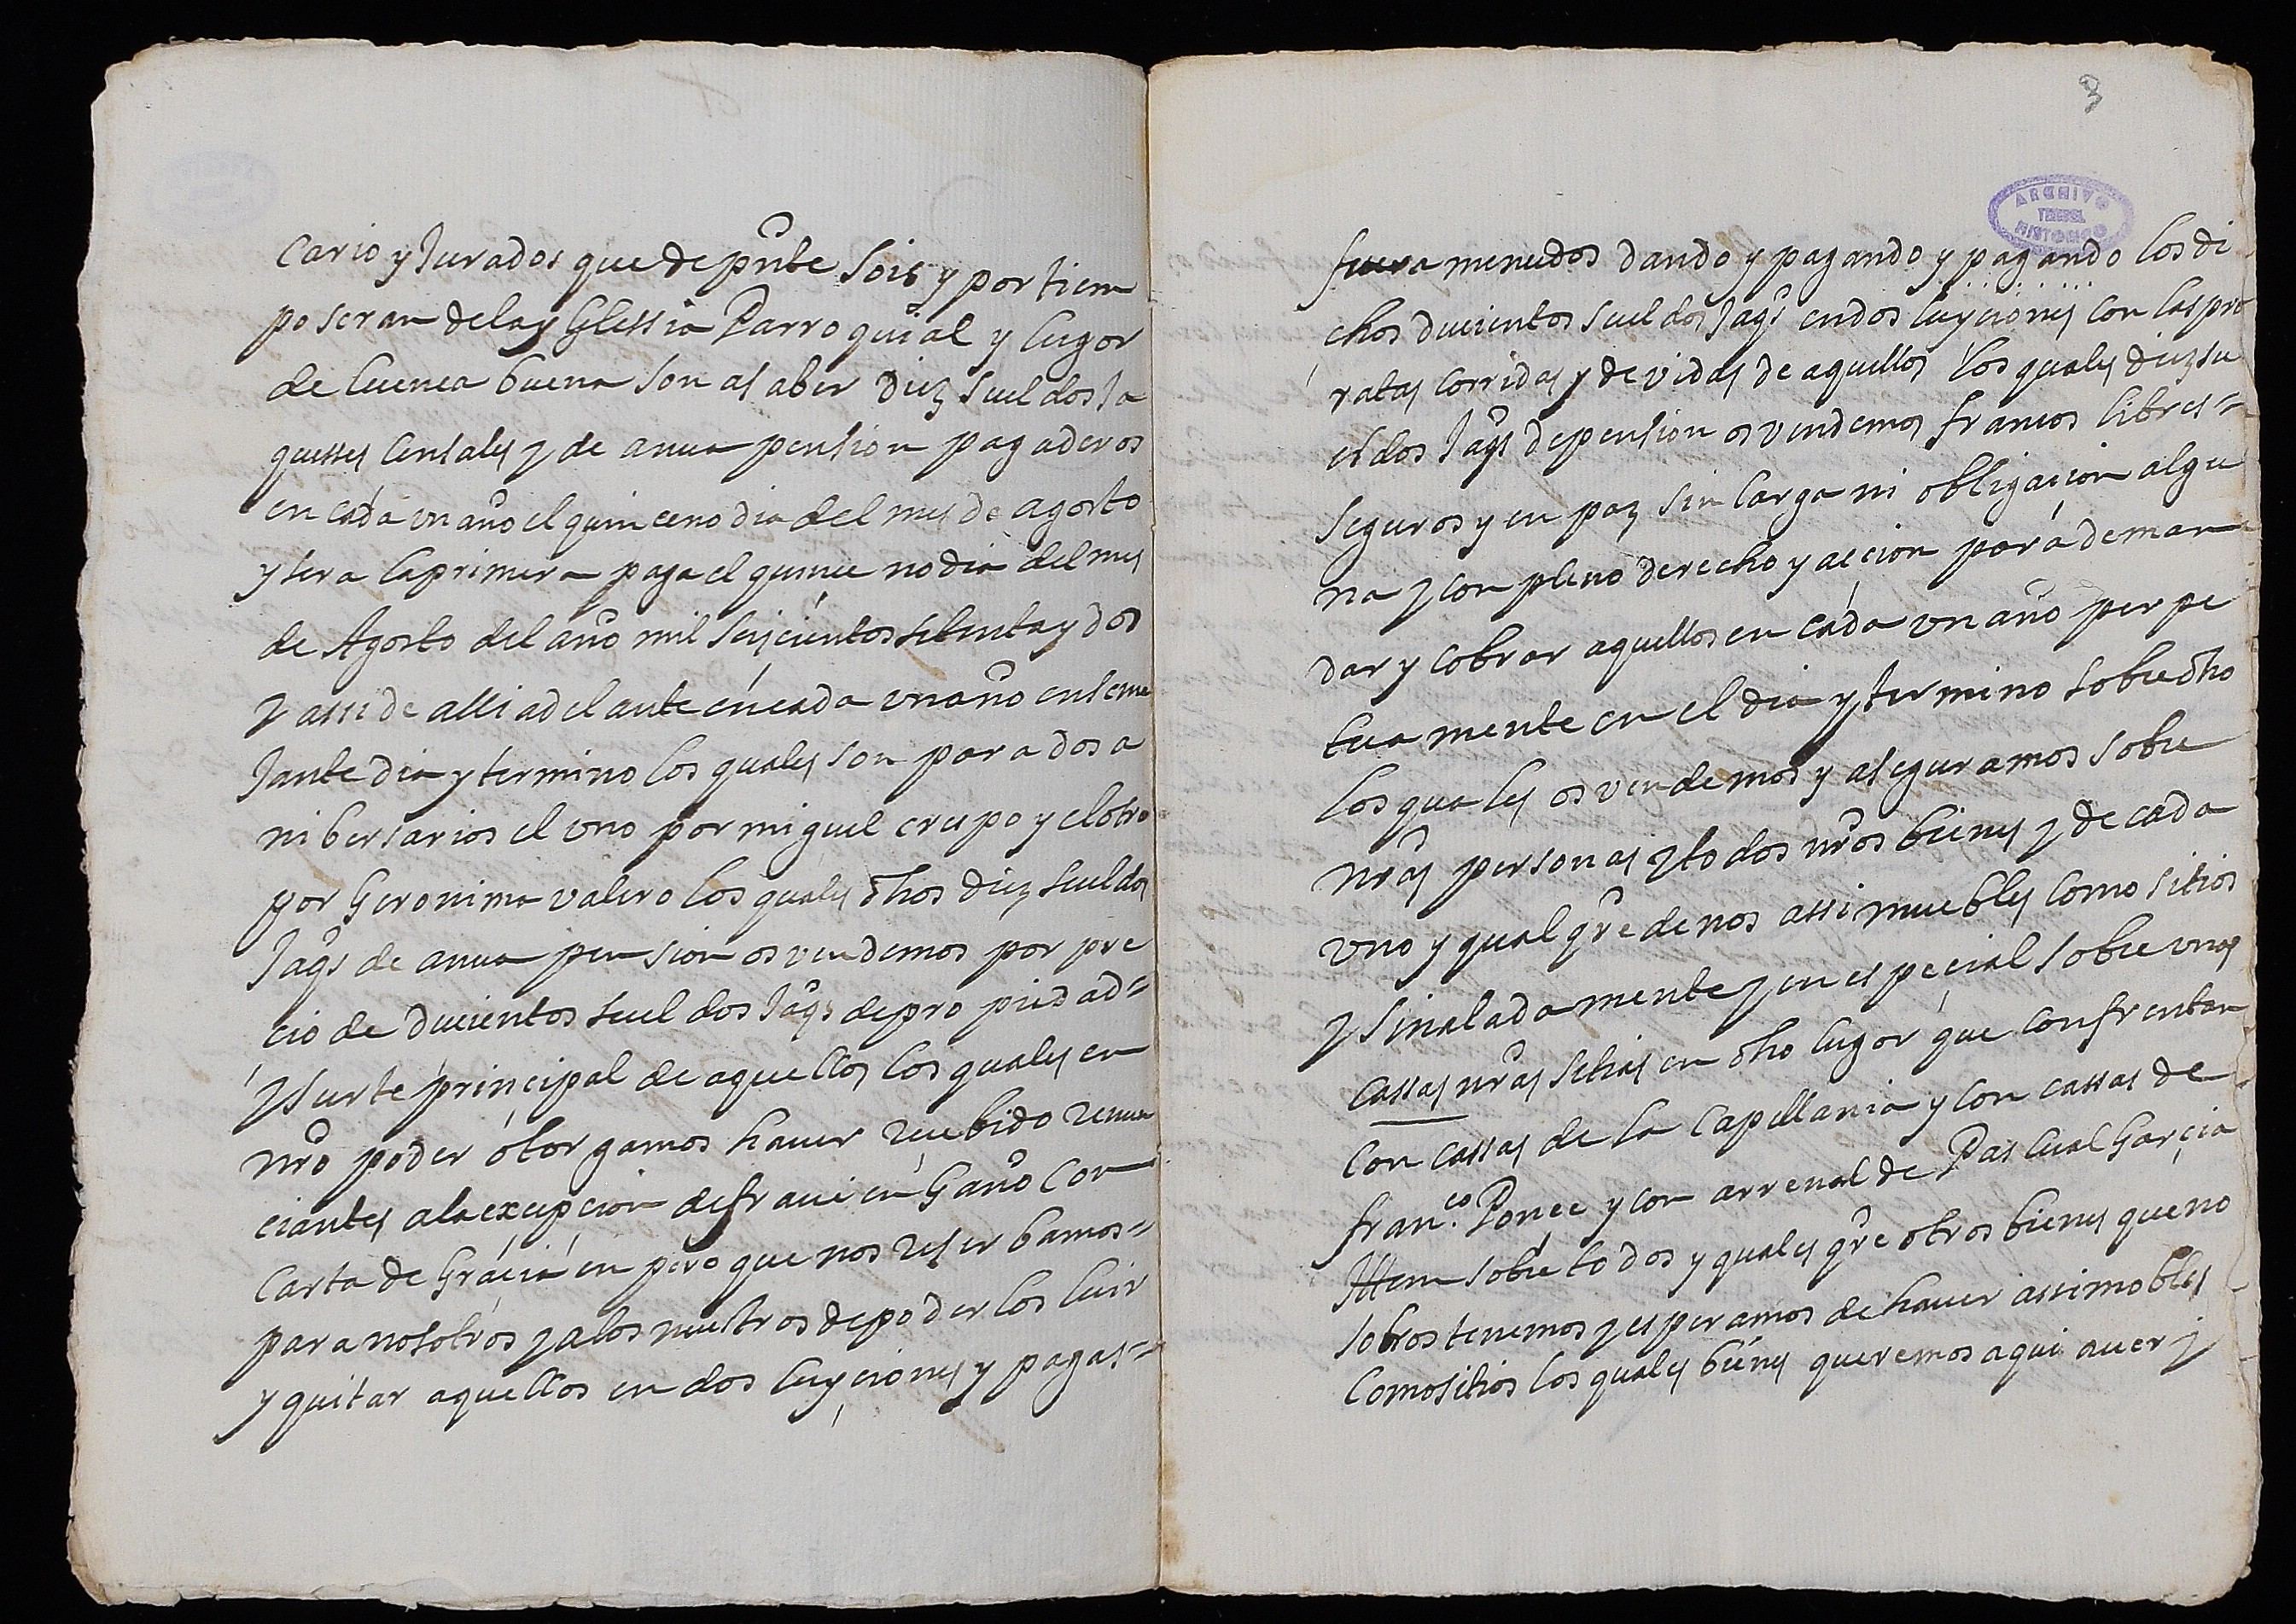 cario y Jurados que de pnte sois y por tiem
po seran dela yGlessia Parroquial y lugar
de Cuenca buena son asaber diez sueldos Ja
quesses Censales y de anua pension pagaderos
en cada vn año el quinceno dia del mes de agosto
y sera la primera paga el quince no dia del mes
de Agosto del año mil seiscientos setenta y dos
y assi de alli adelante en cada vn año en seme
Jante dia y termino los quales son para dos a
nibersarios el vno por miguel crespo y el otro
por Geronima valero los quales dhos diez sueldos
Jaqs de anua pension os vendemos por pre
cio de ducientos sueldos Jaqs de pro piedad=
y suerte principal de aquellos los quales en
nro poder otorgamos hauer recebido renun
ciantes ala excepcion de fraui en Gaño con
Carta de Gracia en pero que nos reser bamos=
para nosotros y alos nuestros de poder los luir
y quitar aquellos en dos luyciones y pagas=
3
ARCHIVO
TERUEL
HISTORICO
fuera menudos dando y pagando y pagando los di
chos ducientos sueldos Jaqs en dos luyciones con las pro
ratas corridas y devidas de aquellos los quales diez su
eldos Jaqs de pension os vendemos francos libres=
seguros y en paz sin carga ni obligacion algu
na y con pleno derecho y accion para deman
dar y cobrar aquellos en cada vn año per pe
tua mente en el dia y termino sobredho
los quales os vendemos y aseguramos sobre
nras personas y todos nros bienes y de cada
vno y qualqre de nos assi muebles como sitios
y sinalada mente y en especial sobre vnas
cassas nras sitias en dho lugar que confrentan
con cassas de la Capellania y con cassas de
franco. Ponce y con arrenal de Pascual Garcia
Ittem sobre todos y quales qre otros bienes que no
sotros tenemos y esperamos de hauer assi mobles
Como sitios los quales bienes queremos aqui auer y